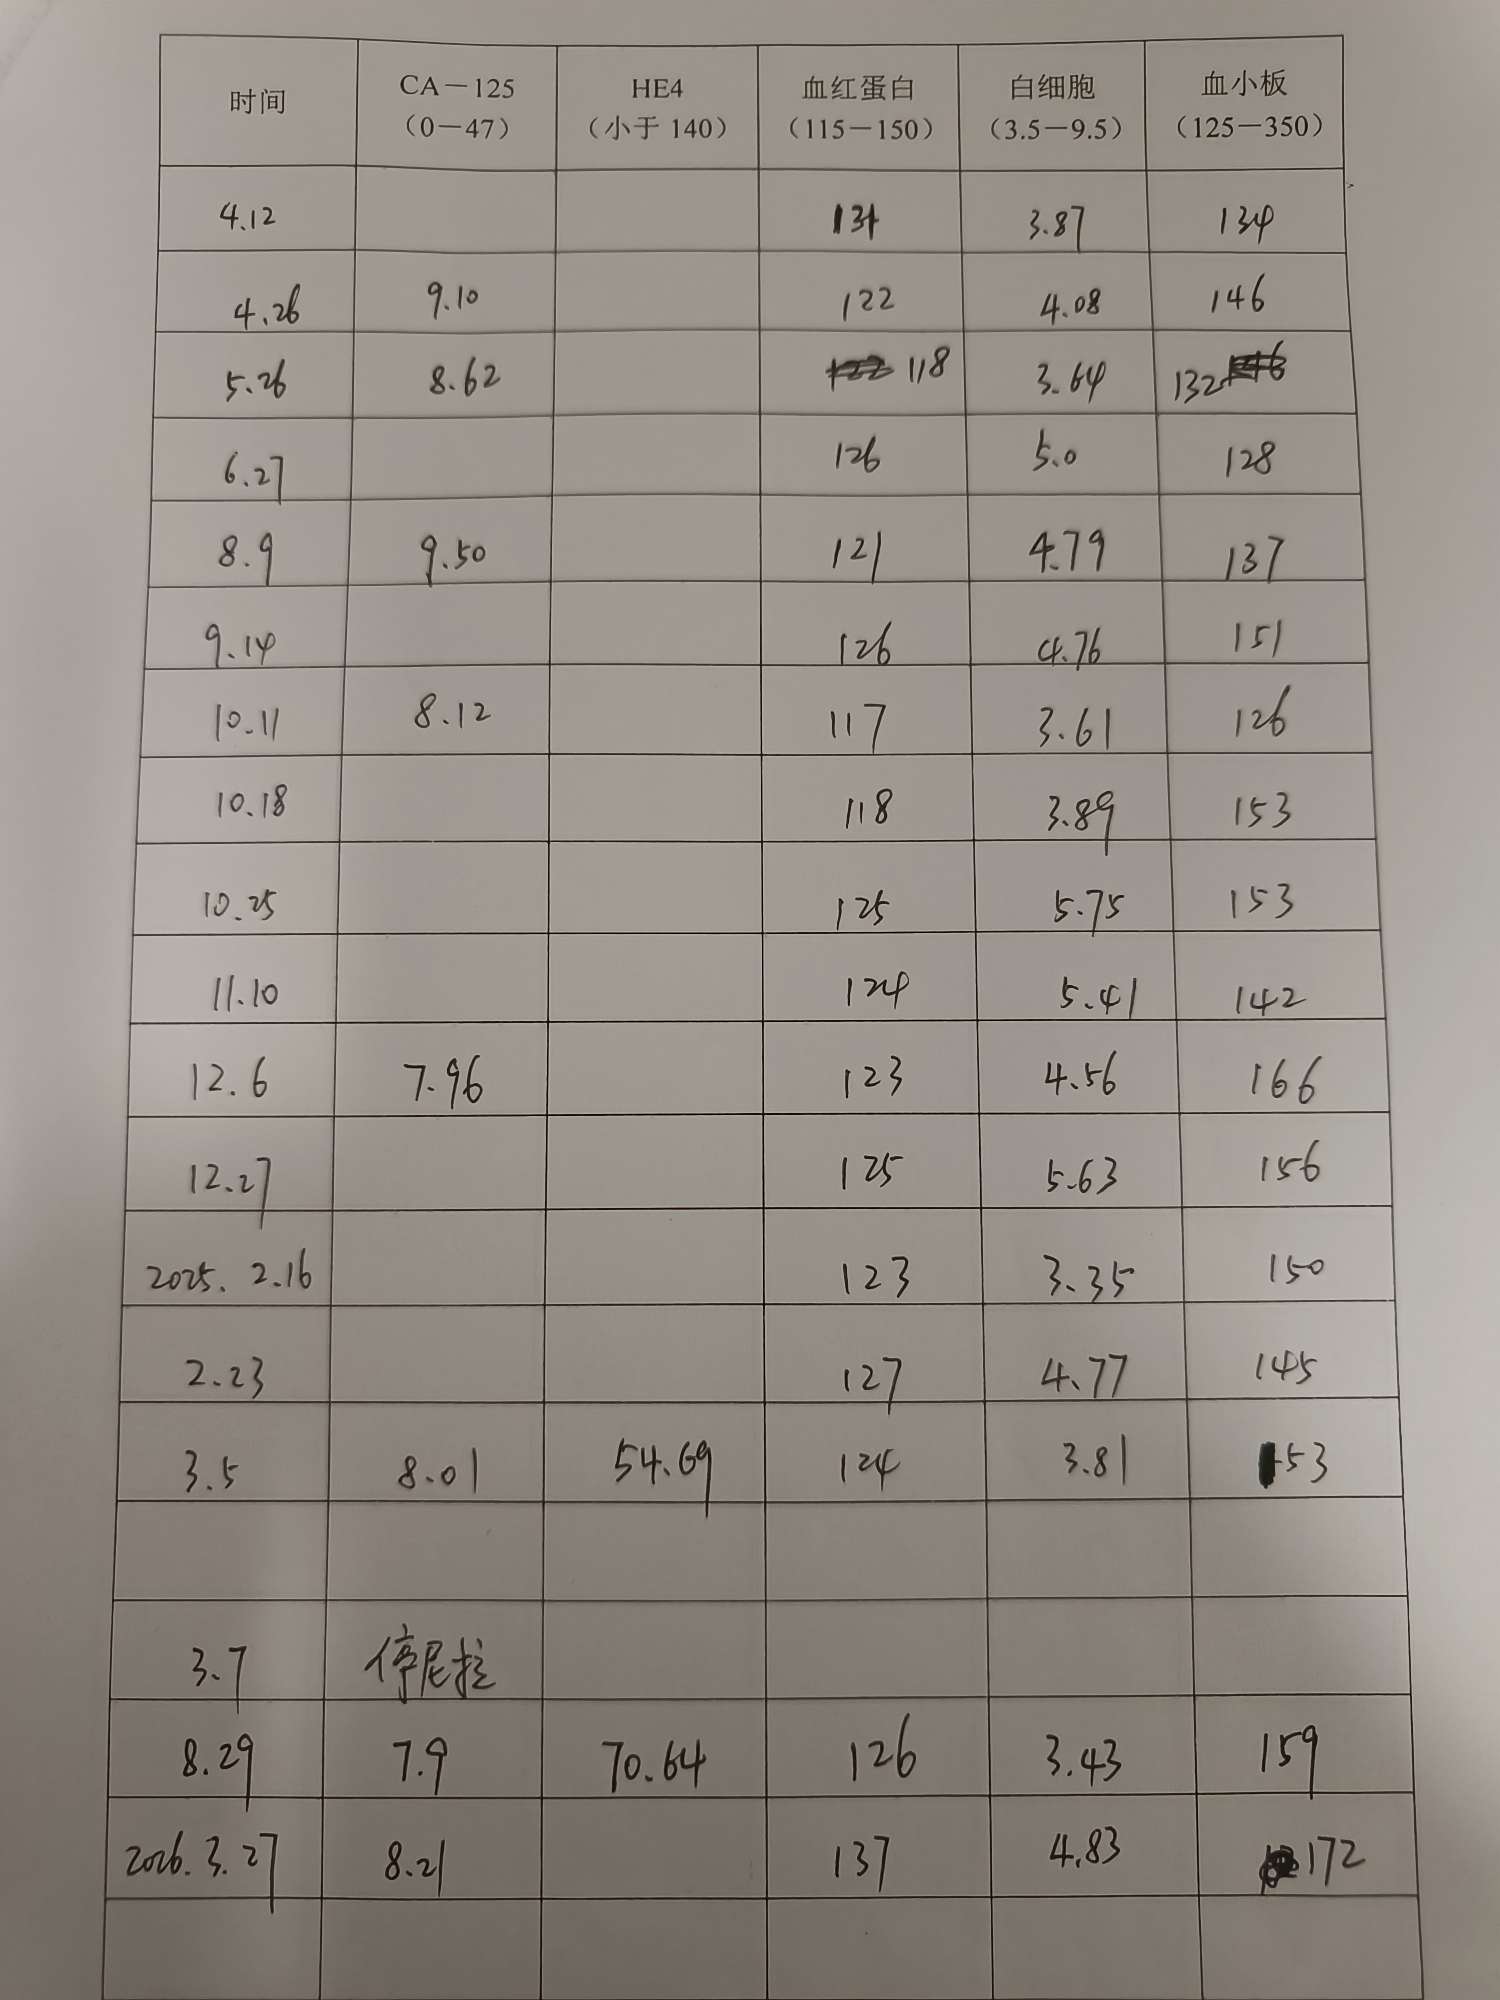 时间 CA－125（0－47） HE4（小于 140） 血红蛋白（115－150） 白细胞（3.5－9.5） 血小板（125－350）
4.12 131 3.87 134
4.26 9.10 122 4.08 146
5.26 8.62 118 3.64 132
6.27 126 5.0 128
8.9 9.50 121 4.79 137
9.14 126 4.76 151
10.11 8.12 117 3.61 126
10.18 118 3.89 153
10.25 125 5.75 153
11.10 124 5.41 142
12.6 7.96 123 4.56 166
12.27 125 5.63 156
2025. 2.16 123 3.35 150
2.23 127 4.77 145
3.5 8.01 54.69 124 3.81 153
3.7 停尼拉
8.29 7.9 70.64 126 3.43 159
2026. 3. 27 8.21 137 4.83 172